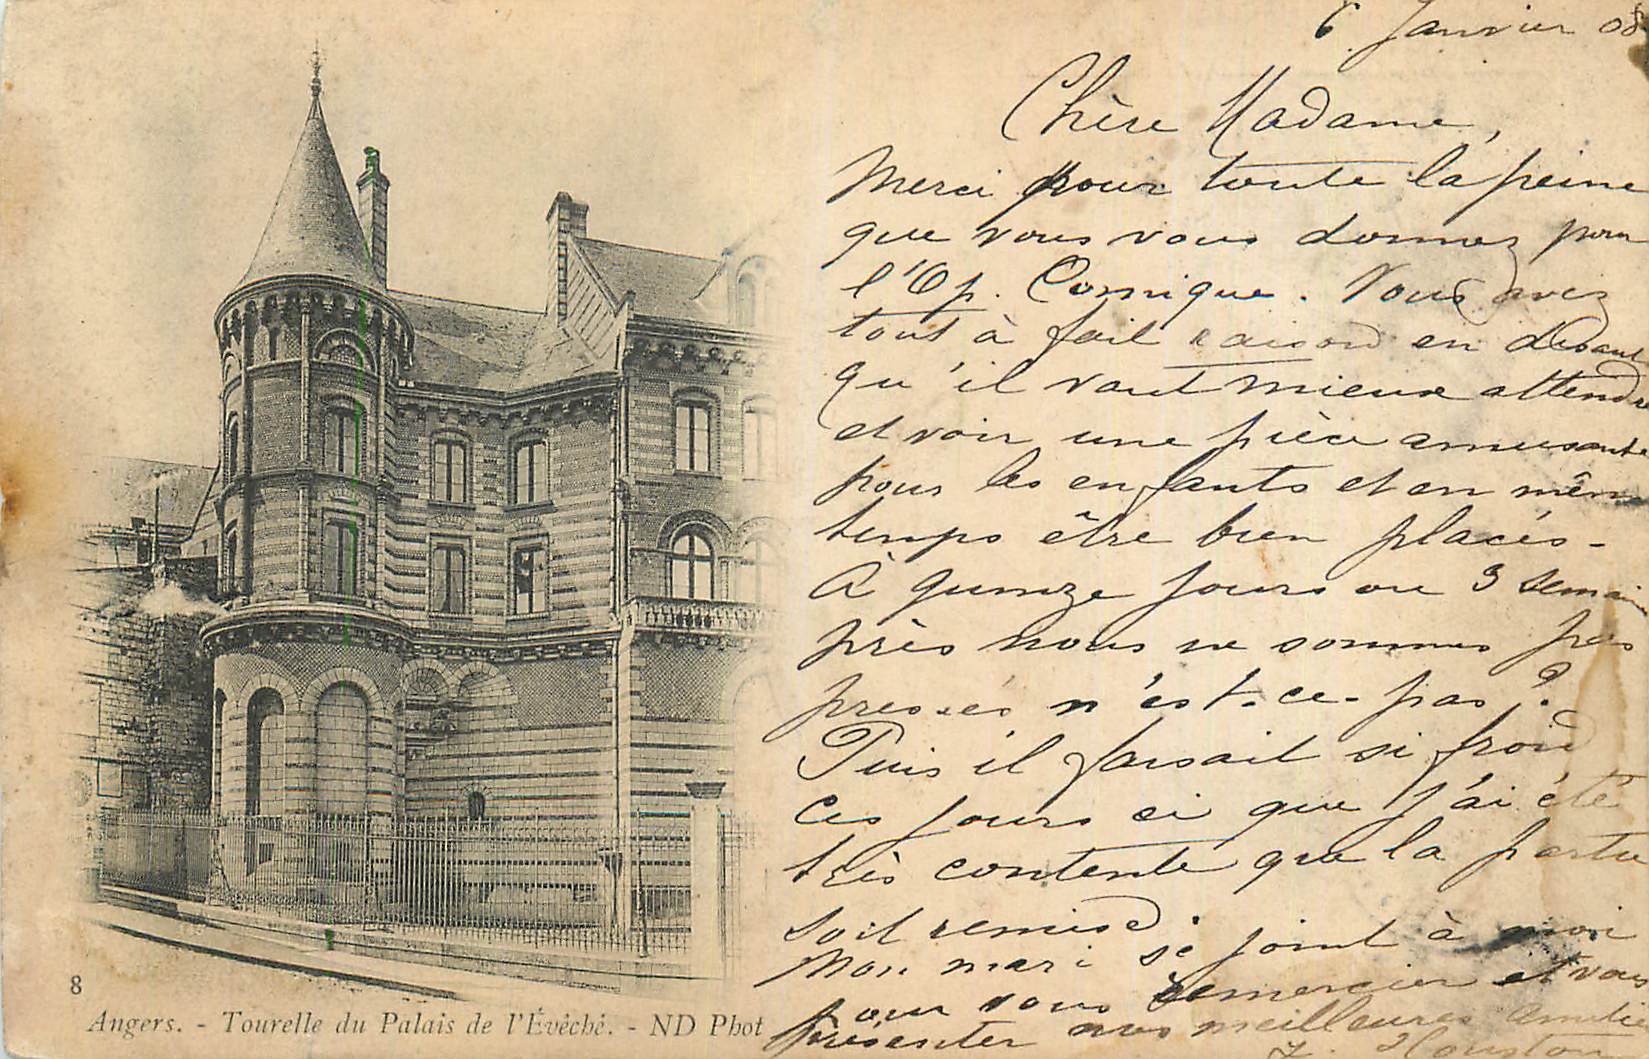 6 Janvier 08
Chère Madame,
Merci pour toute la peine
que vous vous donnez pour
l'Op. Comique. Vous avez
tout à fait raison en disant
qu'il vaut mieux attendre
et voir une pièce amusante
pour les enfants et en même
temps être bien placés -
A quinze jours ou 3 semai
près nous ne sommes pas
pressés n'est-ce-pas ?
Puis il faisait si froid
ces jours ci que j'ai été
très contente que la partie
soit remise.
Mon mari se joint à moi
pour vous remercier et vous
présenter nos meilleures amitiés
8
Angers. - Tourelle du Palais de l'Évêché. - ND Phot